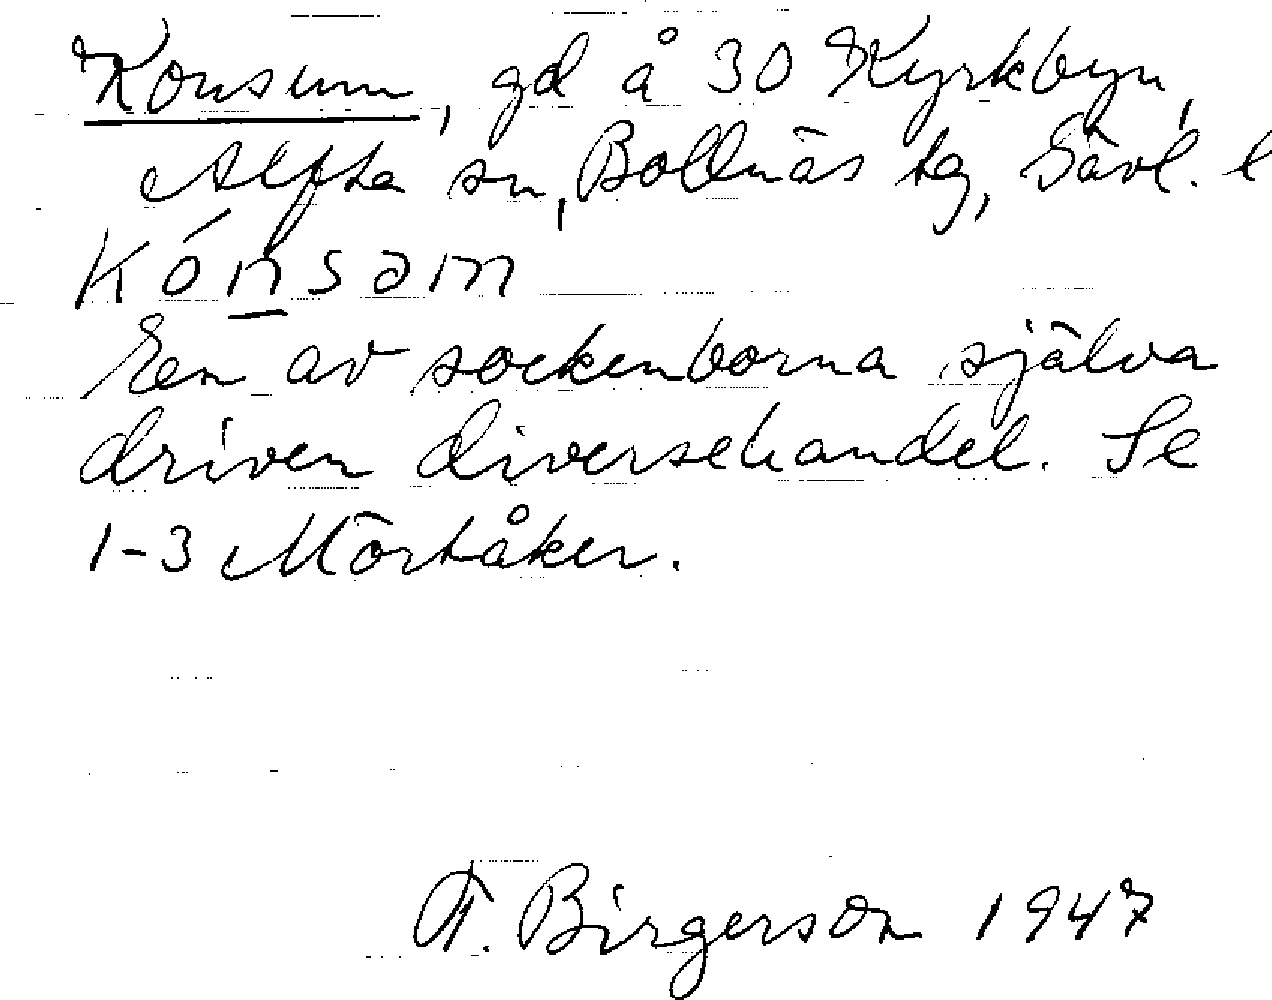 Konsum, gd å 30 Kyrkbyn,
Alfta sn, Bollnäs tg, Gävl. l
kónsəm
En av sockenborna själva
driven diversehandel. Se
1-3 Mörtåker.
F. Birgerson 1947